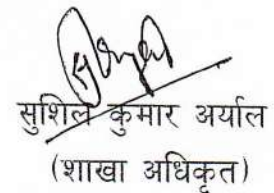 सुशिल कुमार अर्याल
(शाखा अधिकृत)